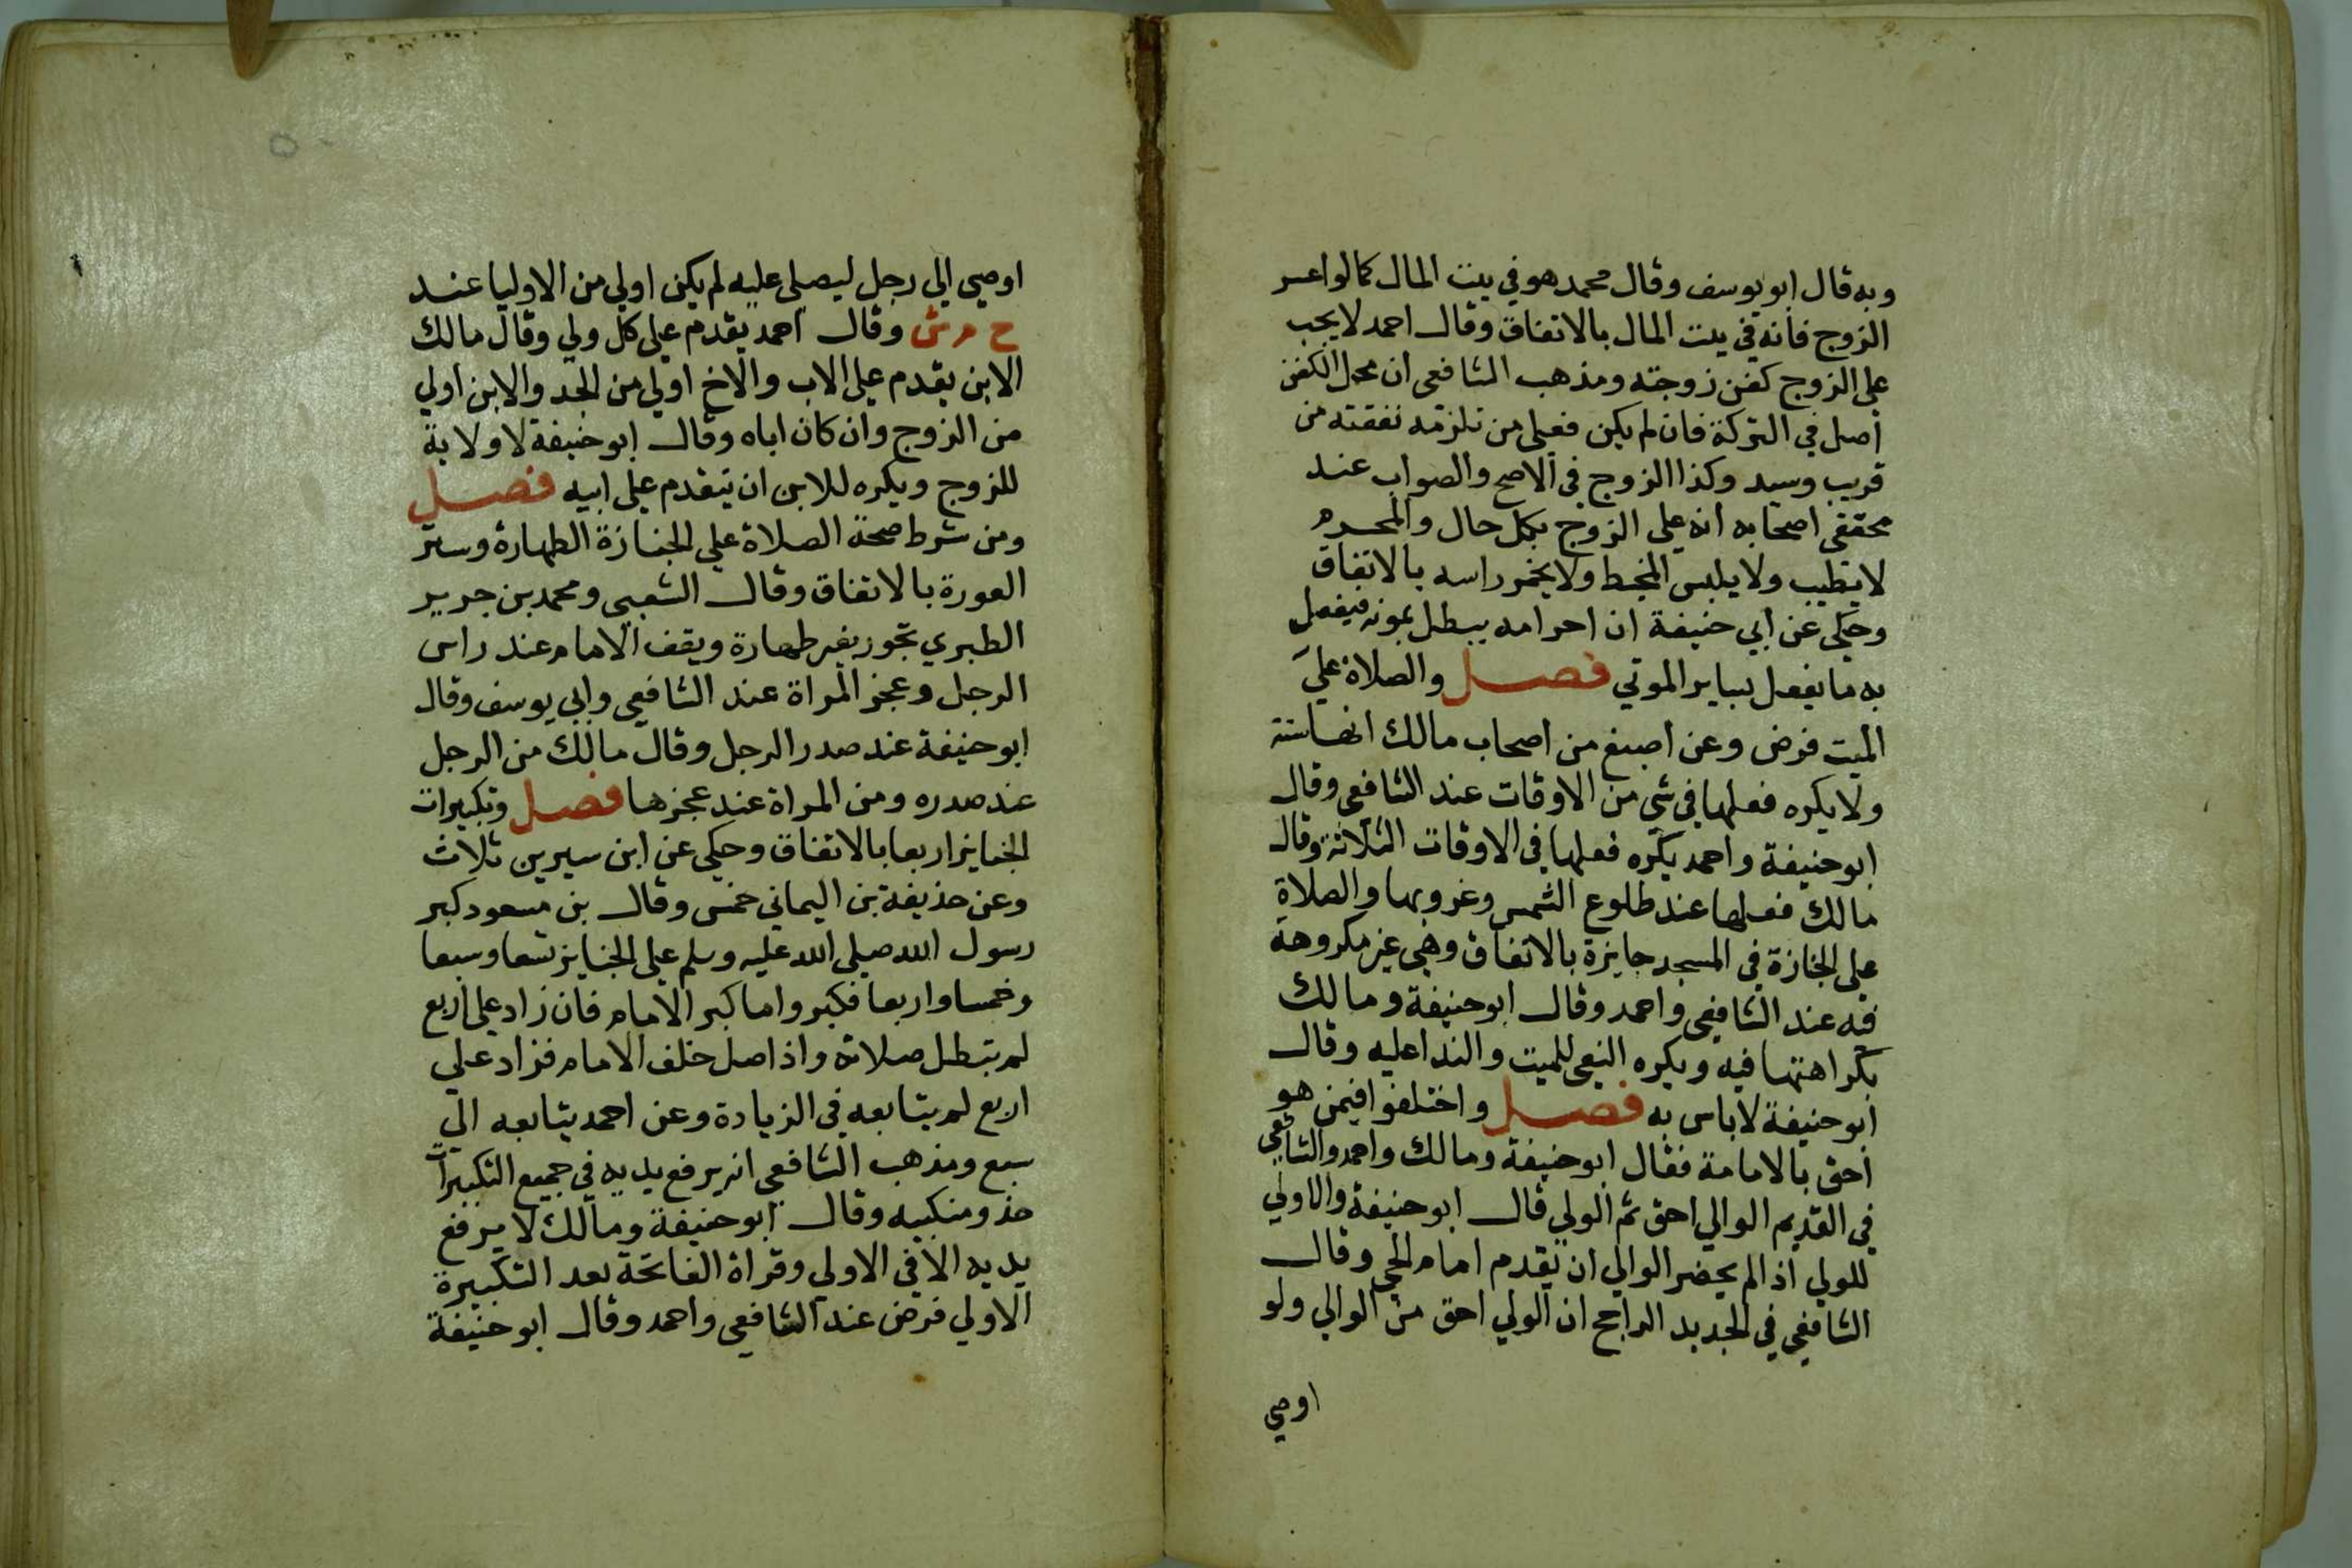 وبه قال ابو يوسف وقال محمد هو في بيت المال كما لو اعسر
الزوج فانه في بيت المال بالاتفاق وقال احمد لا يجب
على الزوج كفن زوجته ومذهب الشافعى ان محمل الكفن
اصل في التركة فان لم يكن فعلى من تلزمه نفقته من
قريب وسيد وكذا الزوج في الاصح والصواب عند
محققى اصحابه انه على الزوج بكل حال والمحرم
لا يطيب ولا يلبس المخيط ولا يخمر راسه بالاتفاق
وحكى عن ابي حنيفة ان احرامه يبطل بموته فيفعل
به ما يفعل بساير الموتي فصل والصلاة علي
الميت فرض وعن اصبغ من اصحاب مالك انها سنة
ولا يكره فعلها في شي من الاوقات عند الشافعى وقال
ابو حنيفة واحمد يكره فعلها في الاوقات الثلاثة وقال
مالك فعلها عند طلوع الشمس وغروبها والصلاة
على الجنازة في المسجد جايزة بالاتفاق وهي غير مكروهة
فيه عند الشافعى واحمد وقال ابو حنيفة ومالك
بكراهتها فيه ويكره النعى للميت والندا عليه وقال
ابو حنيفة لا باس به فصل واختلفوا فيمن هو
احق بالامامة فقال ابو حنيفة ومالك واحمد والشافعي
في القديم الوالي احق ثم الولي قال ابو حنيفة والاولي
للولي اذا لم يحضر الوالي ان يقدم امام الحي وقال
الشافعي في الجديد الراجح ان الولي احق من الوالي ولو
اوصي
اوصي الي رجل ليصلى عليه لم يكن اولي من الاوليا عند
ح م ش وقال احمد يقدم على كل ولي وقال مالك
الابن يقدم على الاب والاخ اولي من الجد والابن اولي
من الزوج وان كان اباه وقال ابو حنيفة لا ولاية
للزوج ويكره للابن ان يتقدم على ابيه فصل
ومن شرط صحة الصلاة علي الجنازة الطهارة وستر
العورة بالاتفاق وقال الشعبي ومحمد بن جرير
الطبري تجوز بغير طهارة ويقف الامام عند راس
الرجل وعجز المراة عند الشافعي وابي يوسف وقال
ابو حنيفة عند صدر الرجل وقال مالك من الرجل
عند صدره ومن المراة عند عجزها فصل وتكبيرات
الجنايز اربعا بالاتفاق وحكي عن ابن سيرين ثلاث
وعن حذيفة بن اليماني خمس وقال بن مسعود كبر
رسول الله صلى الله عليه وسلم على الجنايز تسعا وسبعا
وخمسا واربعا فكبروا ما كبر الامام فان زاد على اربع
لم تبطل صلاته واذا صل خلف الامام فزاد علي
اربع لم يتابعه في الزيادة وعن احمد يتابعه الي
سبع ومذهب الشافعي انه يرفع يديه في جميع التكبيرات
حذو منكبيه وقال ابو حنيفة ومالك لا يرفع
يديه الا في الاولي وقراة الفاتحة بعد التكبيرة
الاولي فرض عند الشافعي واحمد وقال ابو حنيفة